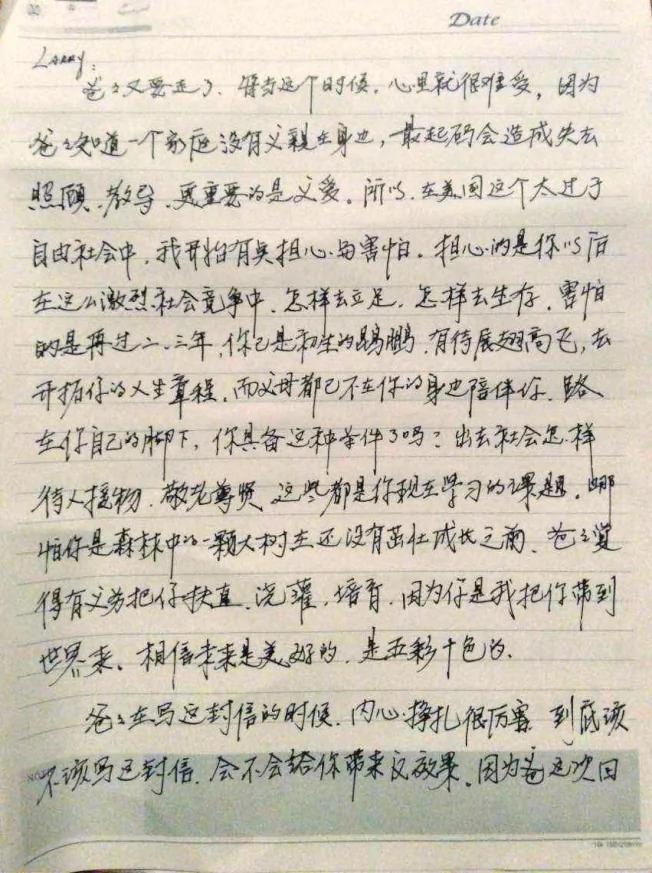 Date
LARRY:
爸爸又要走了.每当这个时候.心里就很难受,因为
爸爸知道一个家庭没有父親在身边,最起码会造成失去
照顾.教导.更重要的是父爱。所以.在美国这个太过于
自由社会中,我开始有点担心与害怕。担心的是你以后
在这么激烈社会竞争中.怎样去立足.怎样去生存.害怕
的是再过二、三年,你已是初生的鹍鹏,有待展翅高飞,去
开拓你的人生章程.而父母都已不在你的身边陪伴你.路
在你自己的脚下,你具备这种条件了吗?出去社会怎样
待人接物.敬老尊贤.这些都是你现在学习的课题。哪
怕你是森林中的一颗大树在还没有茁壮成长之前.爸爸觉
得有义务把你扶直.浇灌.培育.因为你是我把你带到
世界来。相信未来是美好的.是五彩十色的.
爸爸在写这封信的时候.内心挣扎很厉害.到底该
不该写这封信.会不会给你带来反效果。因为爸这次回